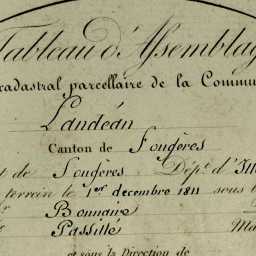 Tableau d'Assemblag
cadastral parcellaire de la Commu
Landéan
Canton de Fougères
t de Fougères Dép.t d'Ill
terrain le 1.er decembre 1811 sous l
Bonnaire
Passillé Ma
et sous la Direction de